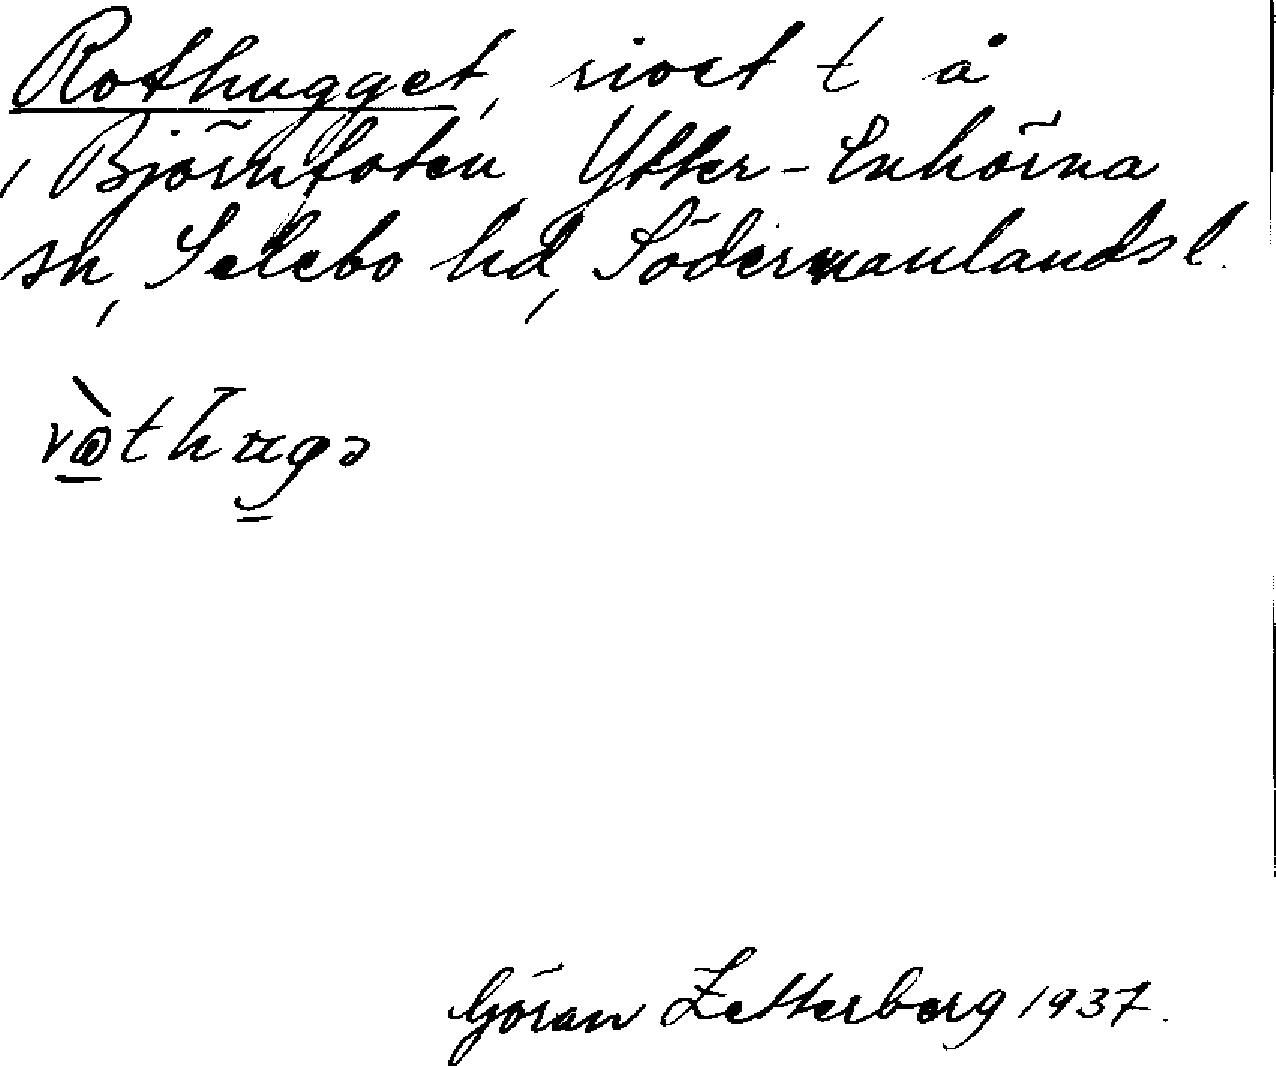 Rothugget, t å
, Björnfoten, Ytter-Enhörna
sn, Selebo hd, Södermanlandsl.
Göran Zetterberg 1937.